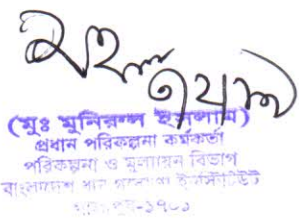 (মুঃ মুনিরুল ইসলাম)
প্রধান পরিকল্পনা কর্মকর্তা
পরিকল্পনা ও মূল্যায়ন বিভাগ
বাংলাদেশ ধান গবেষণা ইন্সটিটিউট
-১৭০১